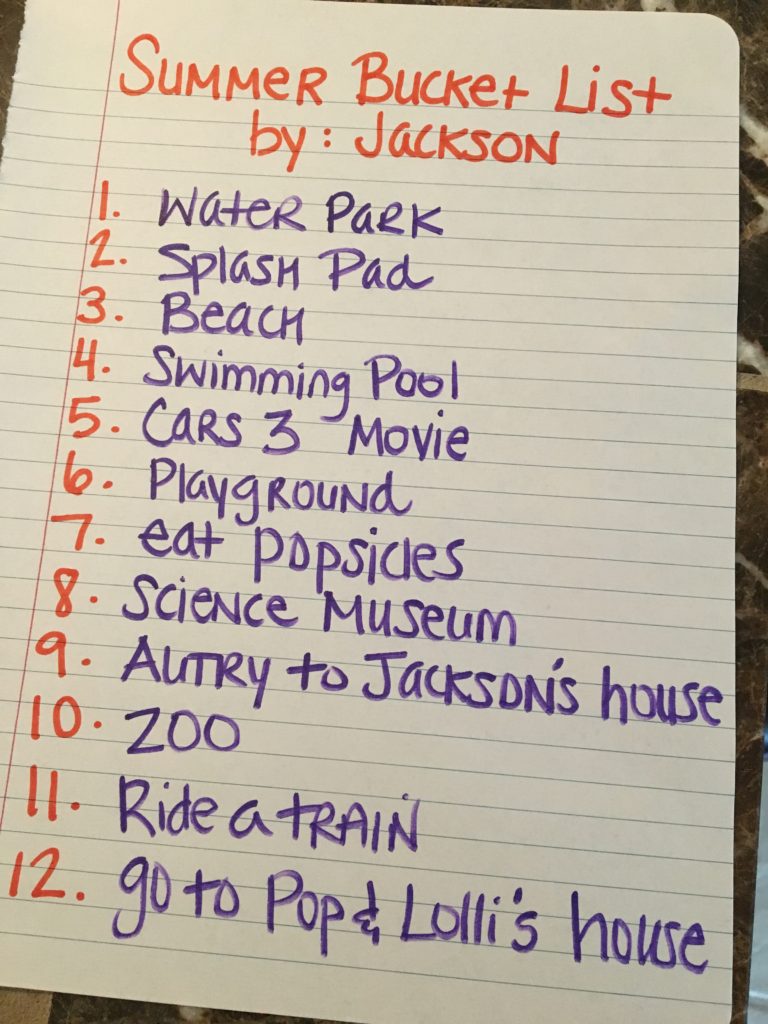 Summer Bucket List
by: Jackson
1. Water Park
2. Splash Pad
3. Beach
4. Swimming Pool
5. Cars 3 Movie
6. Playground
7. eat popsicles
8. Science Museum
9. Autry to Jackson's house
10. Zoo
11. Ride a train
12. go to Pop & Lolli's house